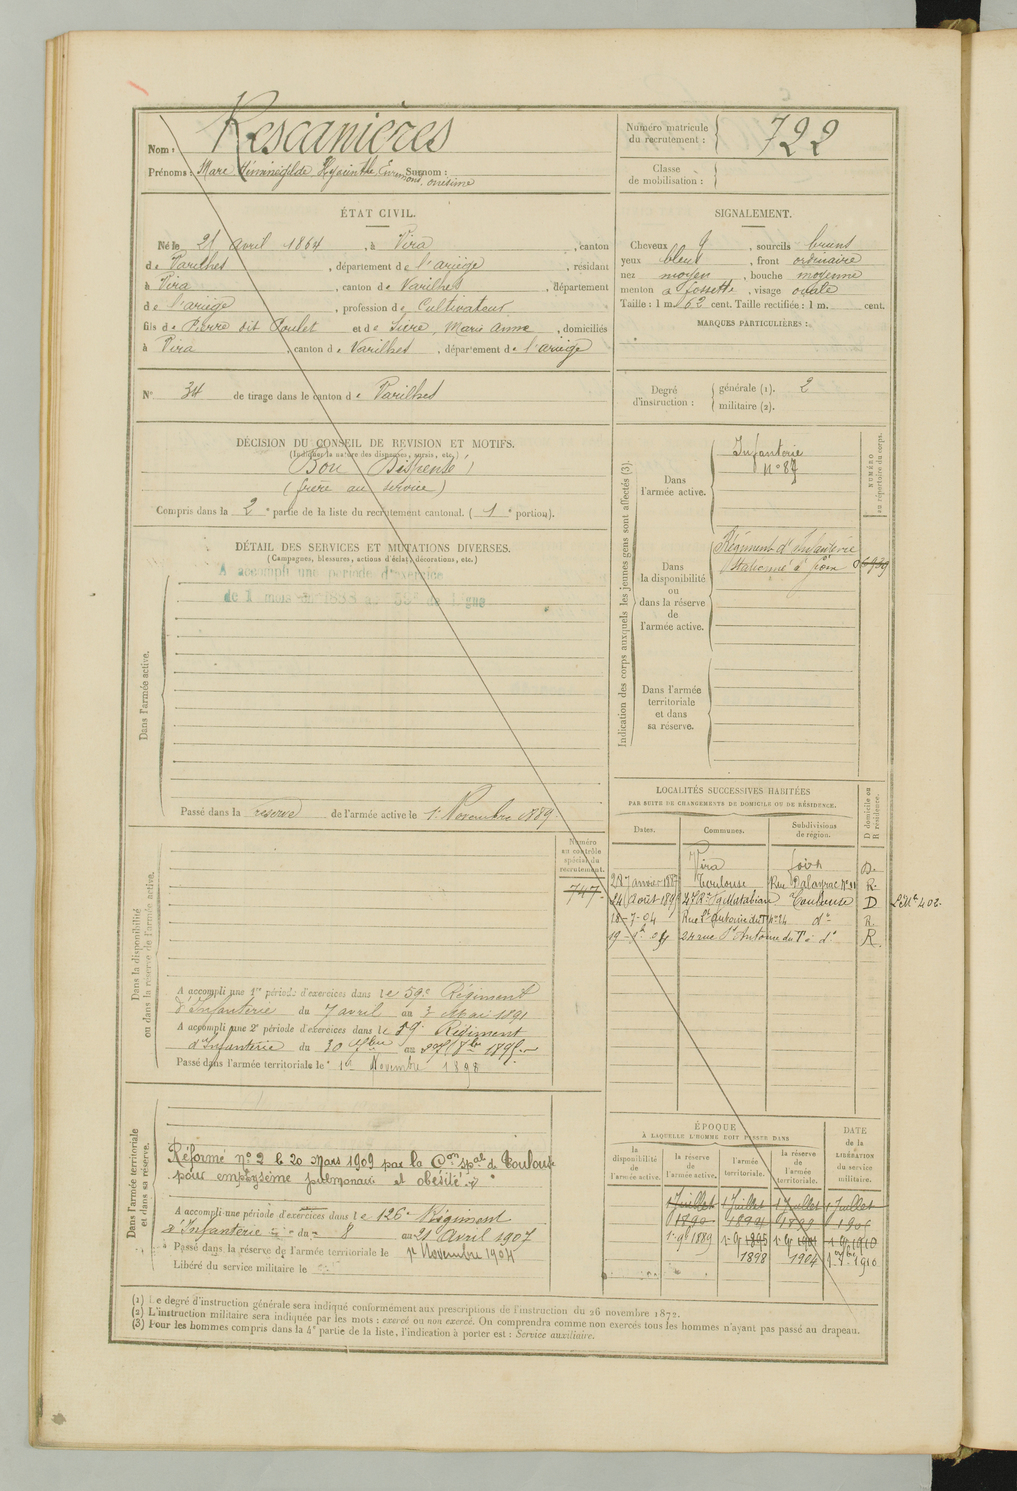 Nom : Rescanières
Prénoms : Marc Herménégilde Hyacinthe, Evremond, onésime Surnom :
Numéro matricule du recrutement : 722
Classe de mobilisation :
ÉTAT CIVIL.
Né le 21 Avril 1864, à Vira, canton
de Varilhes, département de l'ariège, résidant
à Vira, canton de Varilhes, département
de l'ariège, profession de Cultivateur
fils de Pierre dit Poulet et de Siere, Marie Anne, domiciliés
à Vira, canton de Varilhes, département de l'ariège
N° 34 de tirage dans le canton de Varilhes
SIGNALEMENT.
Cheveux , sourcils bruns
yeux bleus, front ordinaire
nez moyen, bouche moyenne
menton à fossette, visage ovale
Taille : 1 m. 62 cent. Taille rectifiée : 1 m. cent.
MARQUES PARTICULIÈRES :
Degré d'instruction : générale (1). 2
militaire (2).
DÉCISION DU CONSEIL DE REVISION ET MOTIFS.
(Indiquer la nature des dispenses, sursis, etc.)
Bon Dispensé
(frère au service)
Compris dans la 2e partie de la liste du recrutement cantonal. (1e portion).
DÉTAIL DES SERVICES ET MUTATIONS DIVERSES.
(Campagnes, blessures, actions d'éclat, décorations, etc.)
A accompli une période d'exercice
de 1 mois en 1888 au 59e de ligne
Dans l'armée active.
Passé dans la réserve de l'armée active le 1er Novembre 1889.
Indication des corps auxquels les jeunes gens sont affectés (3).
NUMÉRO au répertoire du corps.
Dans l'armée active.
Infanterie
N° 87
Dans la disponibilité ou dans la réserve de l'armée active.
Régiment d'Infanterie
stationné à foix
Dans l'armée territoriale et dans sa réserve.
LOCALITÉS SUCCESSIVES HABITÉES
PAR SUITE DE CHANGEMENTS DE DOMICILE OU DE RÉSIDENCE.
Dates. Communes. Subdivisions de région. D domicile ou R résidence.
Vira foix D.
28 Janvier 1887 Toulouse Rue Dalayrac N° 11 R.
Toulouse D
18-7-04 Rue St Antoine du T n° 24 do R.
24 rue St Antoine du T à do R.
Dans la disponibilité ou dans la réserve de l'armée active.
Numéro au contrôle spécial du recrutement.
747
A accompli une 1re période d'exercices dans le 59e Régiment
d'Infanterie du 7 avril au 3 Mai 1891
A accompli une 2e période d'exercices dans le 59e Régiment
d'Infanterie du 30 7bre au 8bre 1895
Passé dans l'armée territoriale le 1er Novembre 1898
Dans l'armée territoriale et dans sa réserve.
Réformé n° 2 le 20 Mars 1909 par la Con spale de Toulouse
pour emphysème pulmonaire et obésité
A accompli une période d'exercices dans le 126e Régiment
d'Infanterie du 8 au 21 Avril 1907
Passé dans la réserve de l'armée territoriale le 1er Novembre 1904
Libéré du service militaire le
ÉPOQUE
À LAQUELLE L'HOMME DOIT PASSER DANS
DATE de la LIBÉRATION du service militaire.
la disponibilité de l'armée active. la réserve de l'armée active. l'armée territoriale. la réserve de l'armée territoriale.
1 Juillet 1 Juillet 1 Juillet 1 Juillet
1890 1899
1889 1895 1901 1910
1898 1904 1910
(1) Le degré d'instruction générale sera indiqué conformément aux prescriptions de l'instruction du 26 novembre 1872.
(2) L'instruction militaire sera indiquée par les mots : exercé ou non exercé. On comprendra comme non exercés tous les hommes n'ayant pas passé au drapeau.
(3) Pour les hommes compris dans la 4e partie de la liste, l'indication à porter est : Service auxiliaire.